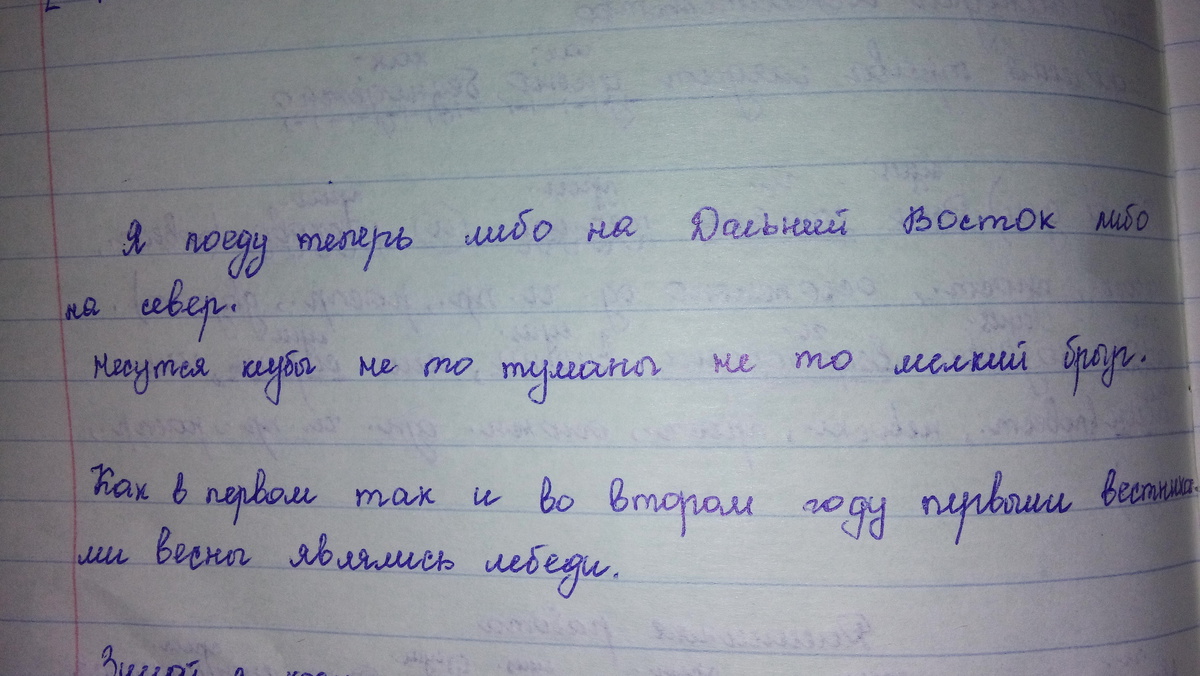 Я поеду теперь либо на Дальний Восток либо
на север.
Несутся клубы не то туманы не то мелкий бры
Как в первом так и во втором году первыми вестника-
ми весны являлись лебеди.
Зимой